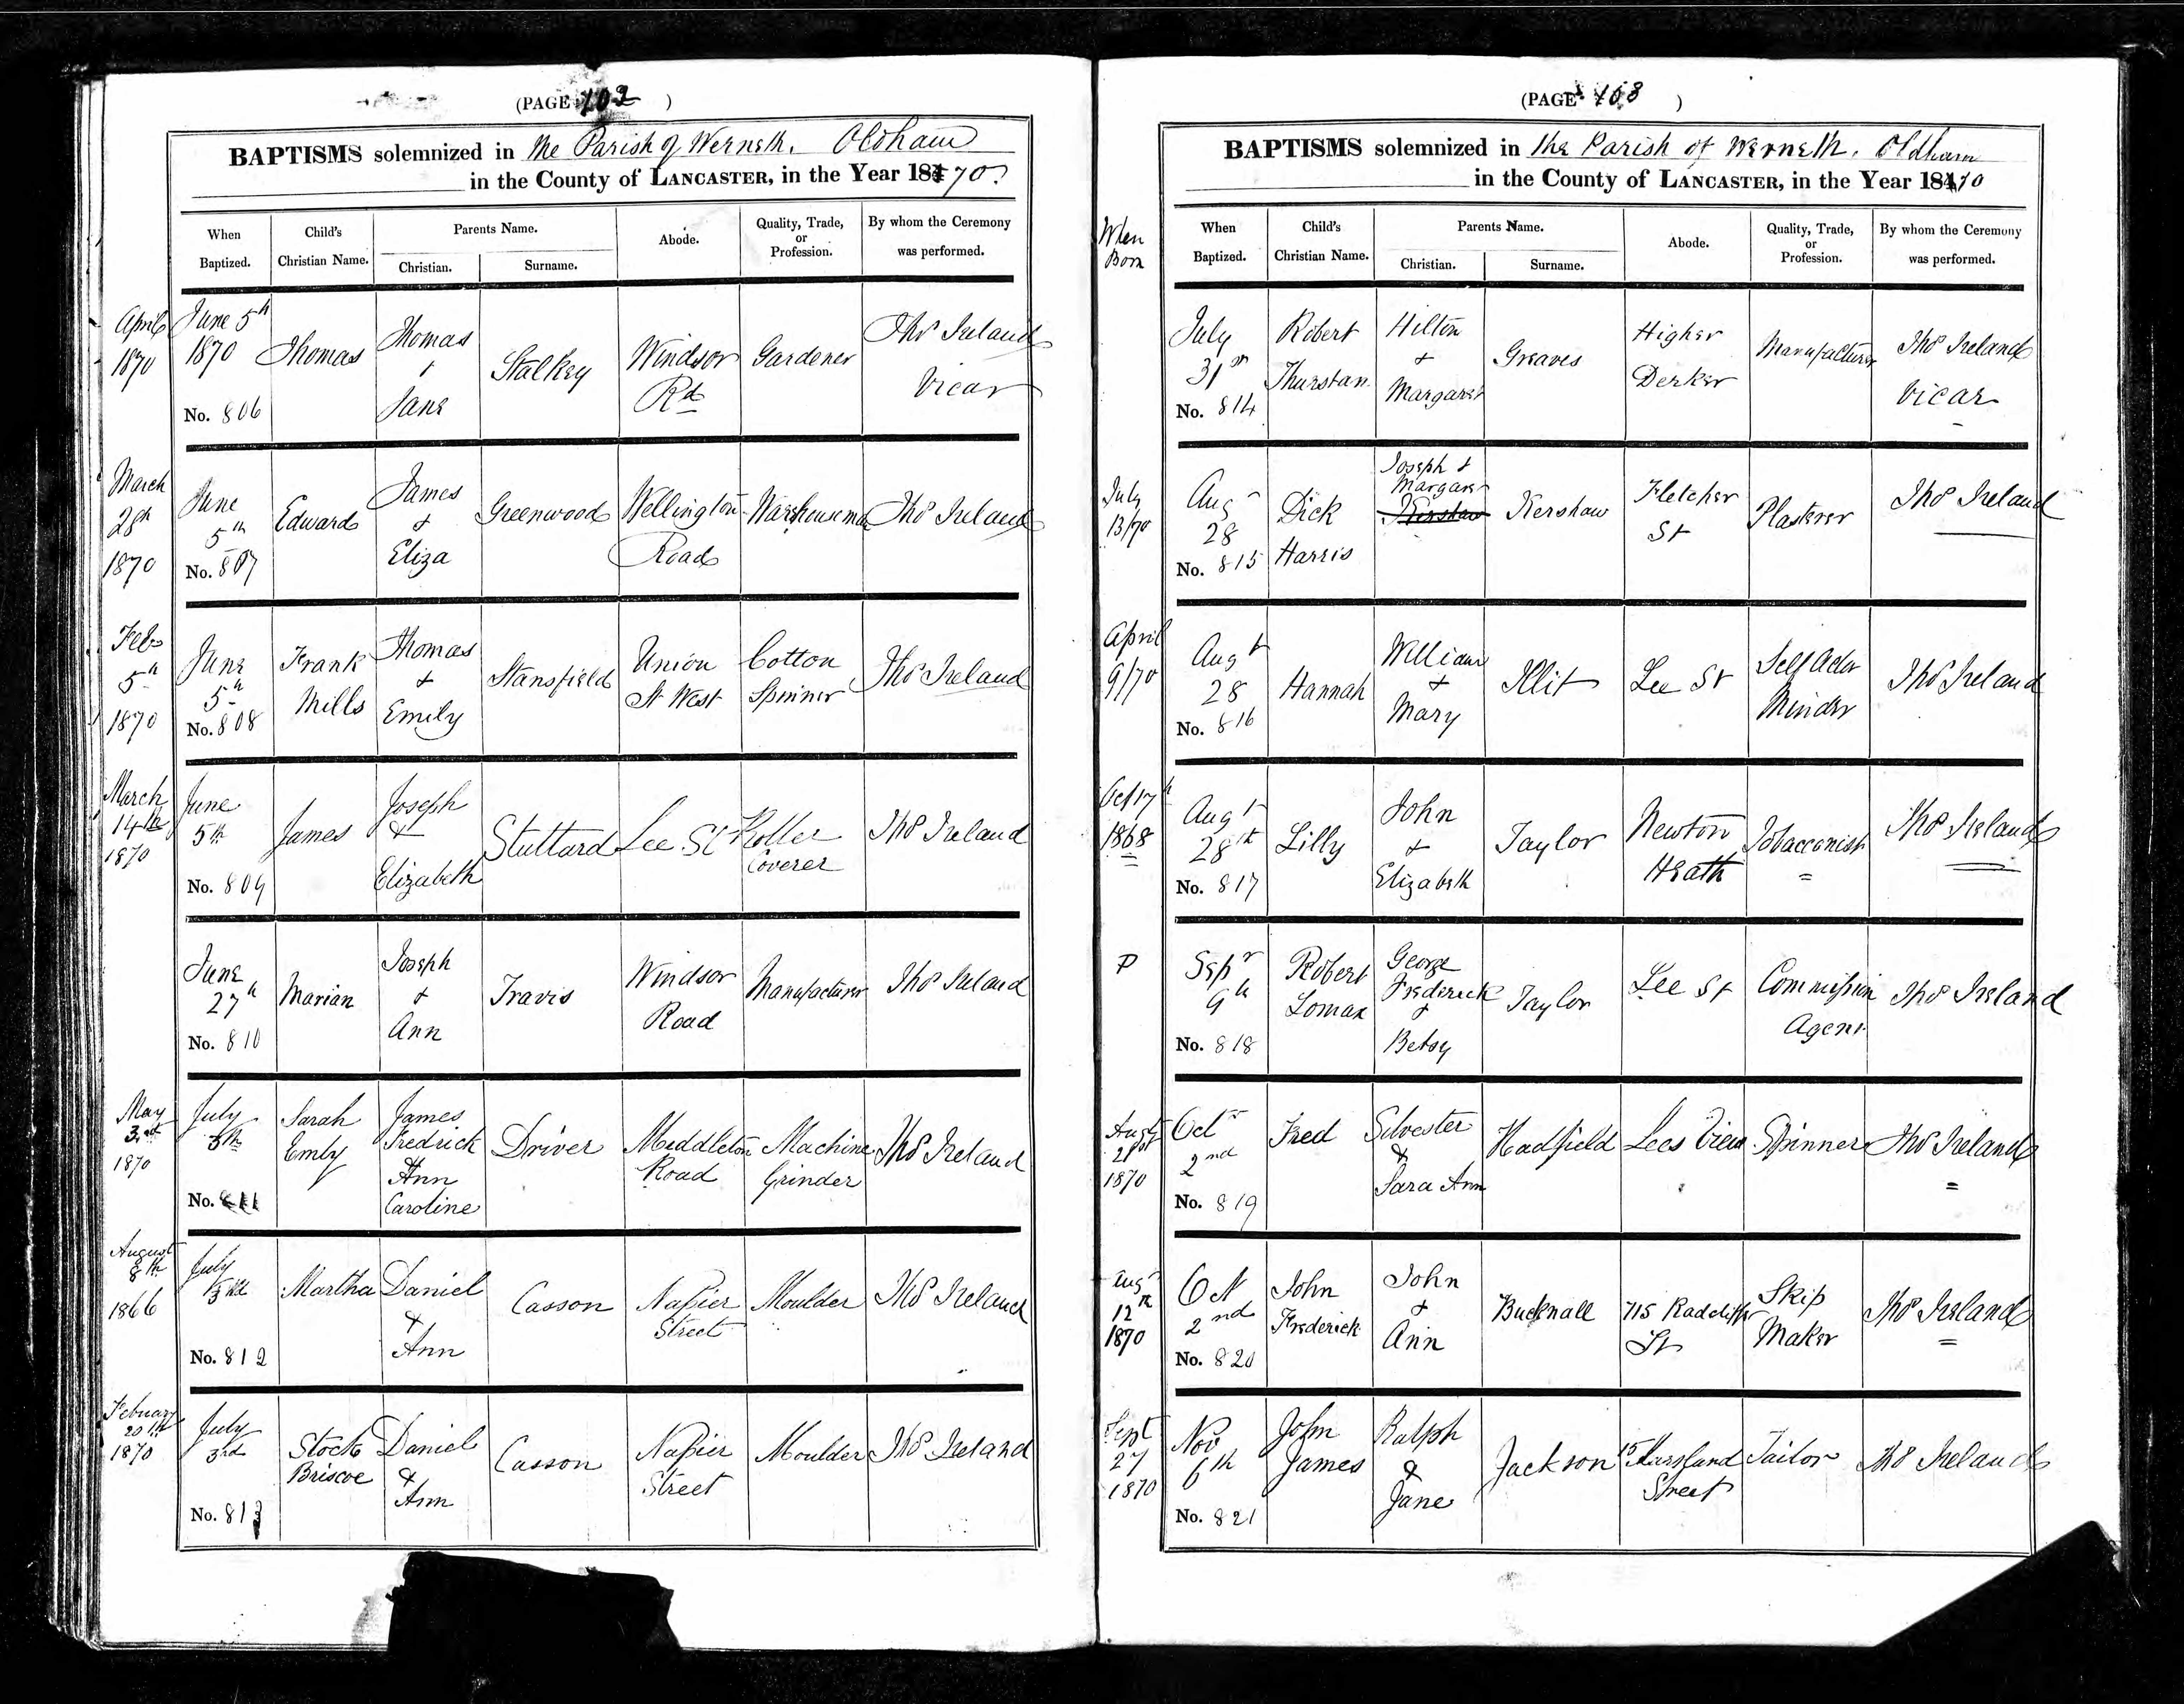 (PAGE 102 )
BAPTISMS solemnized in the Parish of Werneth. Oldham
in the County of LANCASTER, in the Year 1870.
When Baptized.
Child's Christian Name.
Parents Name.
Christian.
Surname.
Abode.
Quality, Trade, or Profession.
By whom the Ceremony was performed.
April 1870
June 5th 1870
No. 806
Thomas
Thomas & Jane
Stalkey
Windsor Rd
Gardener
Thos Ireland Vicar
March 28th 1870
June 5th
No. 807
Edward
James & Eliza
Greenwood
Wellington Road
Thos Ireland
Feb 5th 1870
June 5th
No. 808
Frank Mills
Thomas & Emily
Stansfield
Union St West
Cotton Spinner
Thos Ireland
March 14th 1870
June 5th
No. 809
James
Joseph & Elizabeth
Stuttard
Lee St
Roller Coverer
Thos Ireland
June 27th
No. 810
Marian
Joseph & Ann
Travis
Windsor Road
Manufacturer
Thos Ireland
May 3rd 1870
July
No. 811
Sarah Emly
James Fredrick Ann Caroline
Driver
Middleton Road
Machine Grinder
Thos Ireland
August 8th 1866
July 3rd
No. 812
Martha
Daniel & Ann
Casson
Napier Street
Moulder
Thos Ireland
February 20th 1870
July 3rd
No. 813
Stock Briscoe
Daniel & Ann
Casson
Napier Street
Moulder
Thos Ireland
(PAGE 103 )
BAPTISMS solemnized in the Parish of Werneth. Oldham
in the County of LANCASTER, in the Year 1870
When Born
When Baptized.
Child's Christian Name.
Parents Name.
Christian.
Surname.
Abode.
Quality, Trade, or Profession.
By whom the Ceremony was performed.
July 31st
No. 814
Robert Thurstan
Hilton & Margaret
Greaves
Higher Derker
Manufacturer
Thos Ireland Vicar
July 13/70
Augt 28
No. 815
Dick Harris
Joseph & Margaret Kershaw
Kershaw
Fletcher St
Plasterer
Thos Ireland
April 9/70
Augt 28
No. 816
Hannah
William & Mary
Illit
Lee St
Self Actor Minder
Thos Ireland
Oct 17th 1868
Augt 28th
No. 817
Lilly
John & Elizabeth
Taylor
Newton Heath
Tobacconist
Thos Ireland
P
Sepr 9th
No. 818
Robert Lomax
George Frederick & Betsy
Taylor
Lee St
Commission Agent
Thos Ireland
Augt 21st 1870
Oct 2nd
No. 819
Fred
Silvester & Sara Ann
Hadfield
Lees View
Spinner
Thos Ireland
Augt 12th 1870
Oct 2nd
No. 820
John Frederick
John & Ann
Bucknall
Radcliffe St
Skip Maker
Thos Ireland
Sept 27 1870
Nov 6th
No. 821
John James
Ralph & Jane
Jackson
15 Marsland Street
Tailor
Thos Ireland